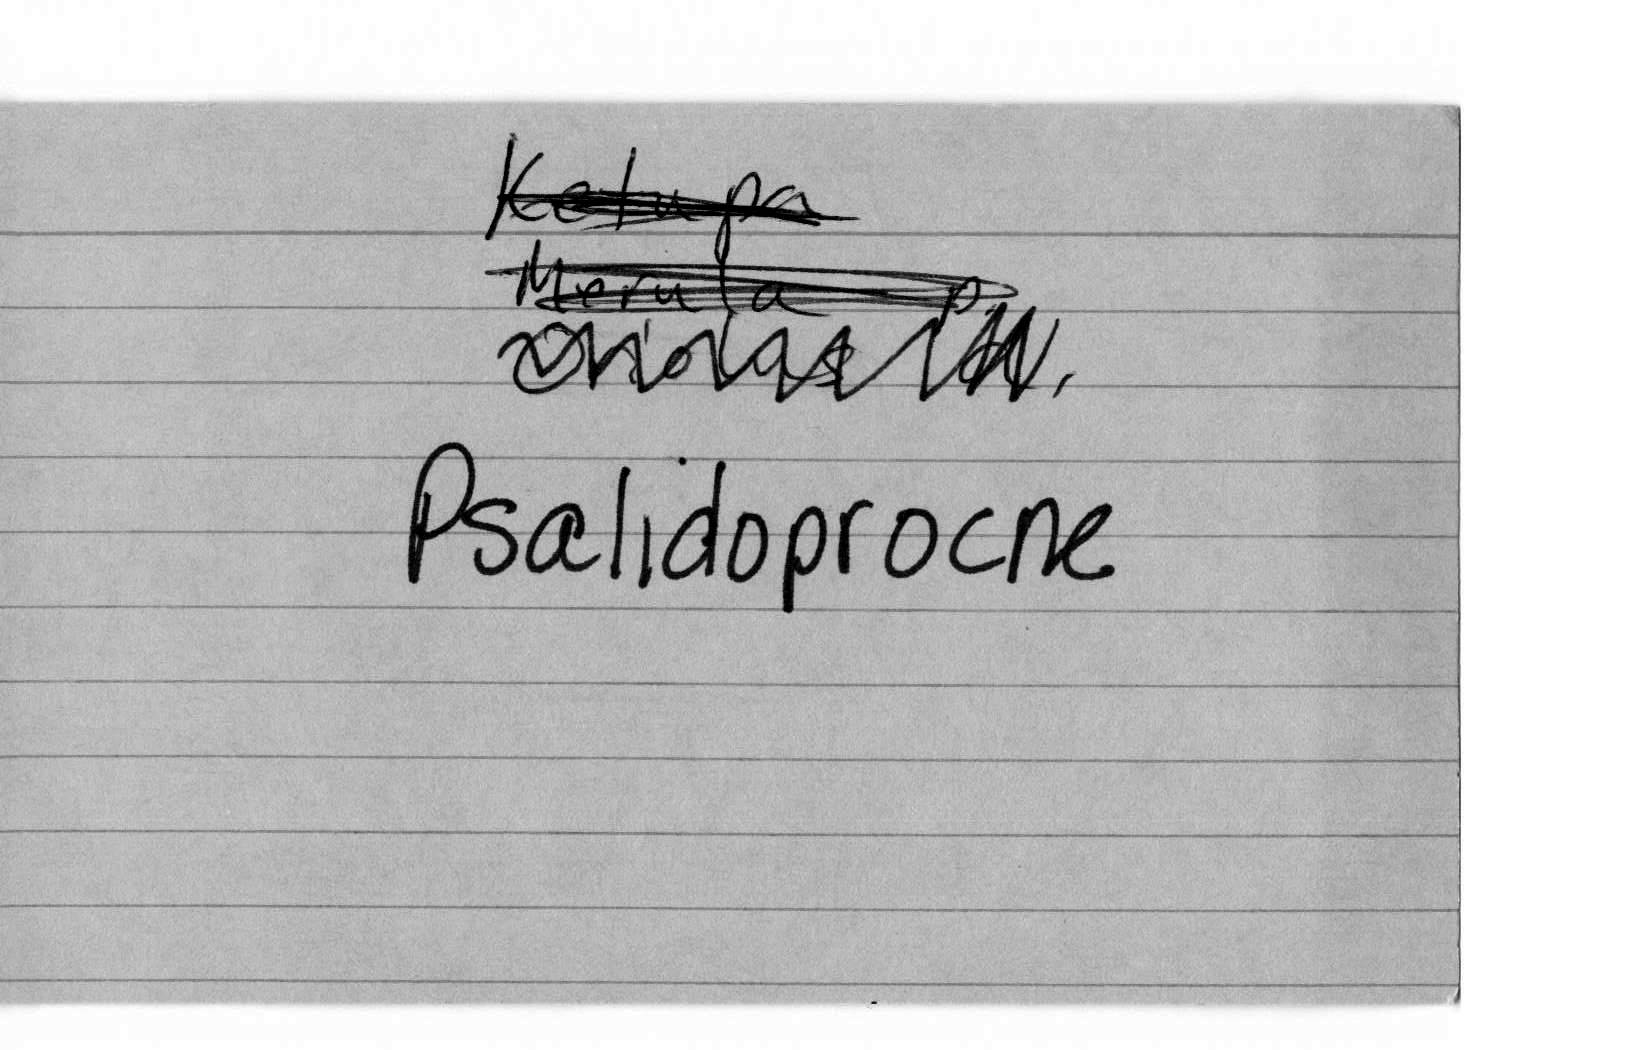 Ketupa
Merula P.
Psalidoprocne